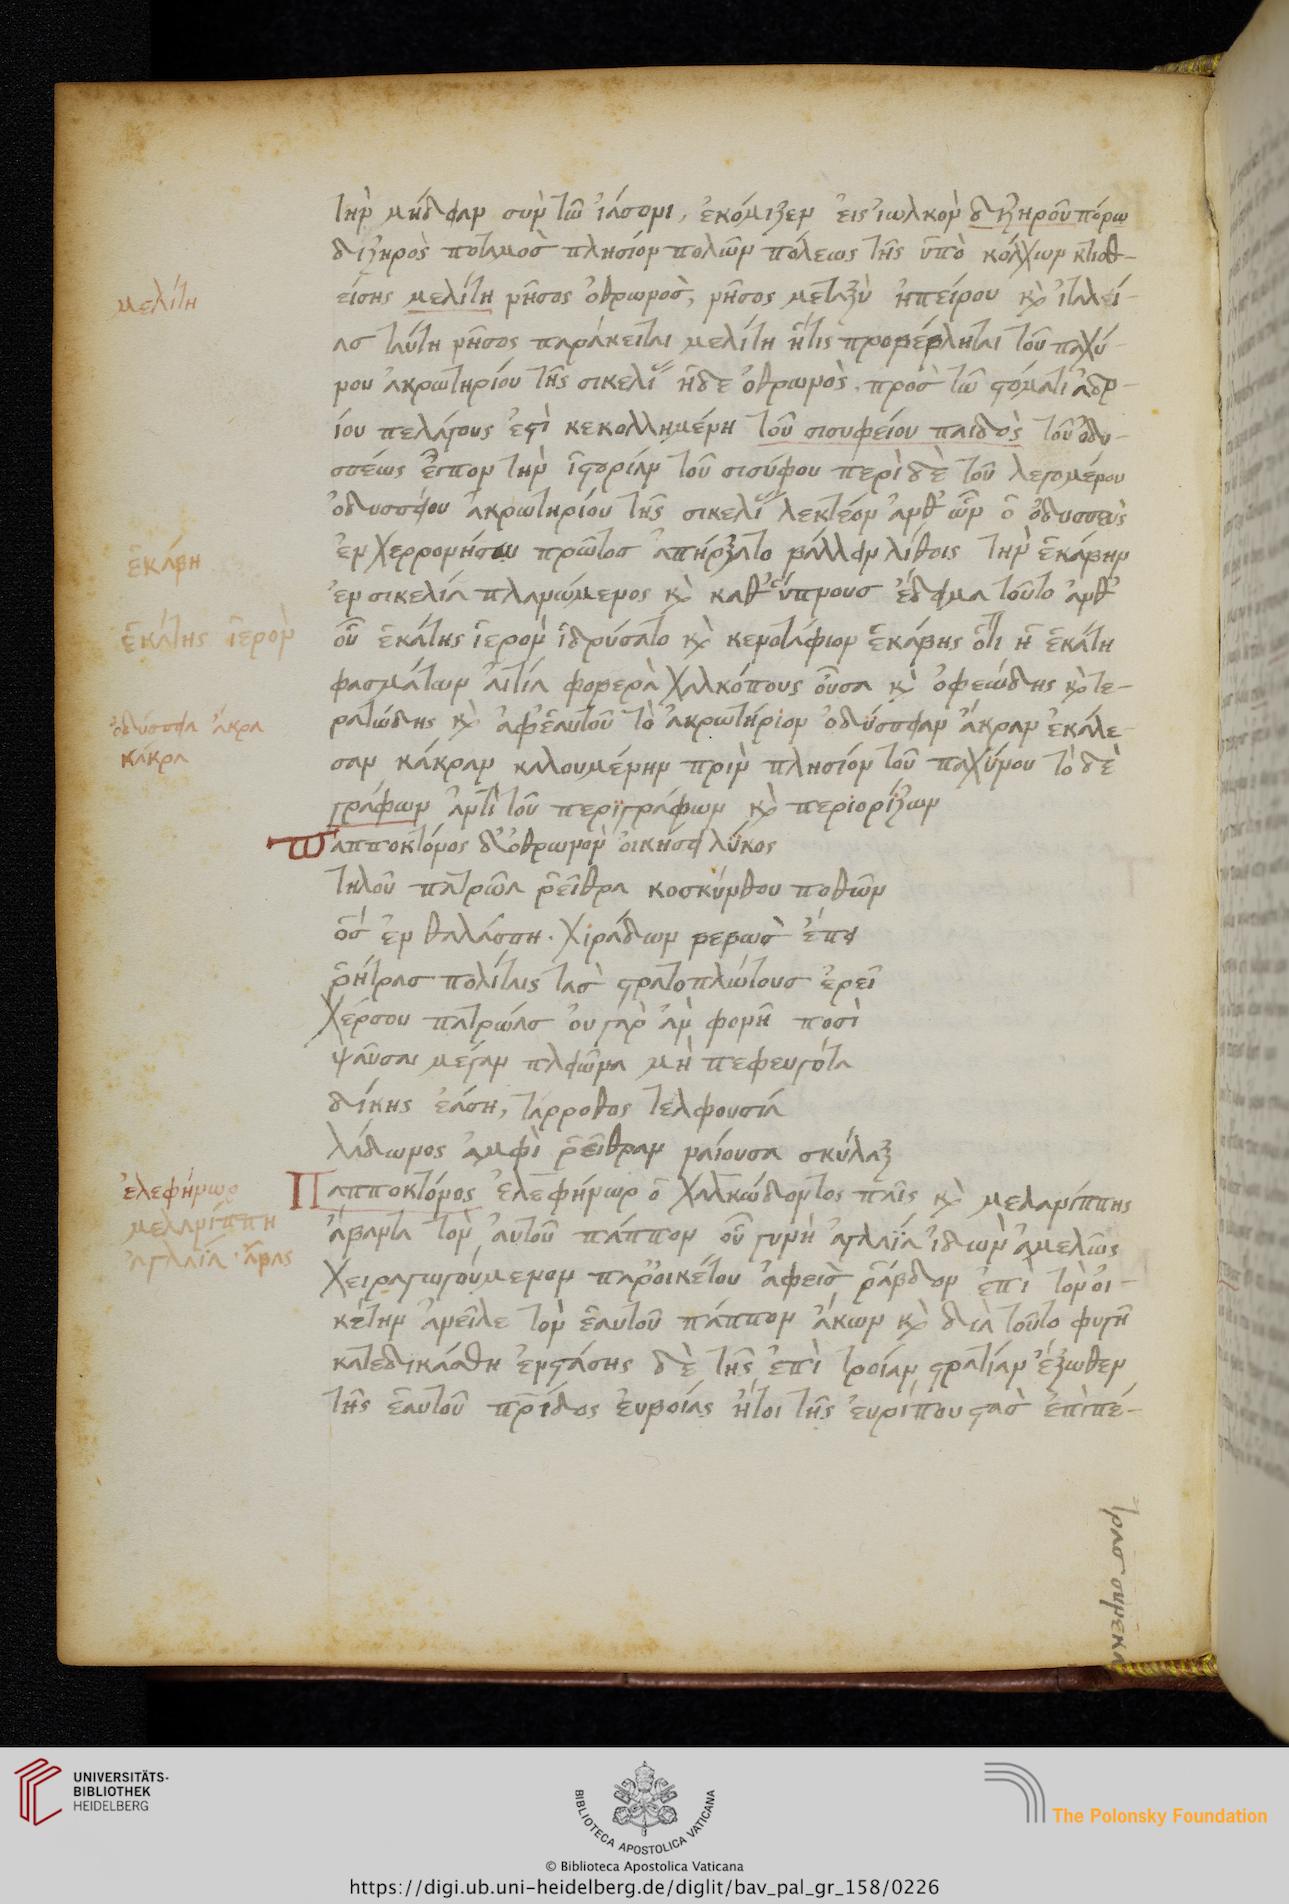 τὴν μήδειαν σὺν τῶ ἰάσονι, ἐκόμιζεν εἰς ἰωλκὸν διζηροῦ πόρω
διζηρὸς ποταμὸσ πλησίον πολῶν πόλεως τῆς ὑπὸ κόλχων κτισθ-
είσης μελίτη νῆσος ὀθρωνὸσ, νῆσος μεταξὺ ἠπείρου κὶ ἰταλεί-
ασ ταύτη νῆσος παράκειται μελίτη ἥτις προβέβληται τοῦ παχύ-
νου ἀκρωτηρίου τῆς σικελί ἡ δε ὀθρωνὸς. προσ τῶ στόματι ἀδρ-
ίου πελάγους ἐστὶ κεκολλημένη τοῦ σισυφείου παιδὸς τοῦ ὀδυ-
σσέως ἔσπον τὴν ἱστορίαν τοῦ σισύφου περὶ δὲ τοῦ λεγομένου
ὀδυσσείου ἀκρωτηρίου τῆς σικελί λεκτέον ἀνθ' ὧν ὁ ὀδυσσεὺς
ἐν χερρονήσω πρῶτοσ ἀπήρξατο βάλλειν λίθοις τὴν ἑκάβην
ἐν σικελία πλανώμενος κὶ καθ' ὕπνουσ ἐδείματοῦτο ἀνθ'
οὗ ἑκάτης ἱερὸν ἱδρύσατο κὶ κενοτάφιον ἑκάβης ὅτι ἡ ἑκάτη
φασμάτων αἰτία φοβερὰ χαλκόπους οὖσα κὶ ὀφεώδης κὶ τε-
ρατώδης κὶ ἀφ' ἑαυτοῦ τὸ ἀκρωτήριον ὀδύσσειαν ἄκραν ἐκάλε-
σαν κάκραν καλουμένην πρὶν πλησίον τοῦ παχύνου τὸ δὲ
γράφων ἀντὶ τοῦ περιγράφων κὶ περιορίζων
Παπποκτόνος δ' ὀθρωνὸν οἰκήσει λύκος
τηλοῦ πατρῶα ῥεῖθρα κοσκύνθου ποθῶν
ὅσ ἐν θαλάσση. χιράδων βεβωσ ἔπει
ῥήτρασ πολίταις τασ στρατοπλώτουσ ἐρεῖ
χέρσου πατρώασ ου γαρ ἀν φονῆ ποσὶ
ψαῦσαι μέγαν πλειῶνα μὴ πεφευγότα
δίκης ἐάση, τάρροθος τελφουσία
λάδωνος ἀμφὶ ῥεῖθραν ναίουσα σκύλαξ
Παπποκτόνος ἐλεφήνωρ ὁ χαλκώδοντος παῖς κὶ μελανίππης
ἄβαντα τὸν αὐτοῦ πάππον οὗ γυνὴ ἀγλαΐα ἰδὼν ἀμελῶς
χειραγωγούμενον παρ' οἰκέτου ἀφεὶσ ῥάβδον ἐπὶ τὸν οἰ-
κέτην ἀνεῖλε τὸν ἑαυτοῦ πάππον ἄκων κὶ διὰ τοῦτο φυγῆ
κατεδικάσθη ἐνστάσης δὲ τῆς ἐπὶ τροίαν στρατίαν ἔξωθεν
τῆς ἑαυτοῦ πρίδος ἐυβοίας ἤτοι τῆς ἐυρίπου στασ ἐπὶ πέ-
μελίτη
ἑκάβη
ἑκάτης ἱερὸν
ὀδύσσεια ἄκρα
κάκρα
ἐλεφήνωρ
μελανίππη
ἀγλαΐα. ἄβας
τρασ σημεκ
UNIVERSITÄTS-
BIBLIOTHEK
HEIDELBERG
BIBLIOTECA APOSTOLICA VATICANA
The Polonsky Foundation
© Biblioteca Apostolica Vaticana
https://digi.ub.uni-heidelberg.de/diglit/bav_pal_gr_158/0226